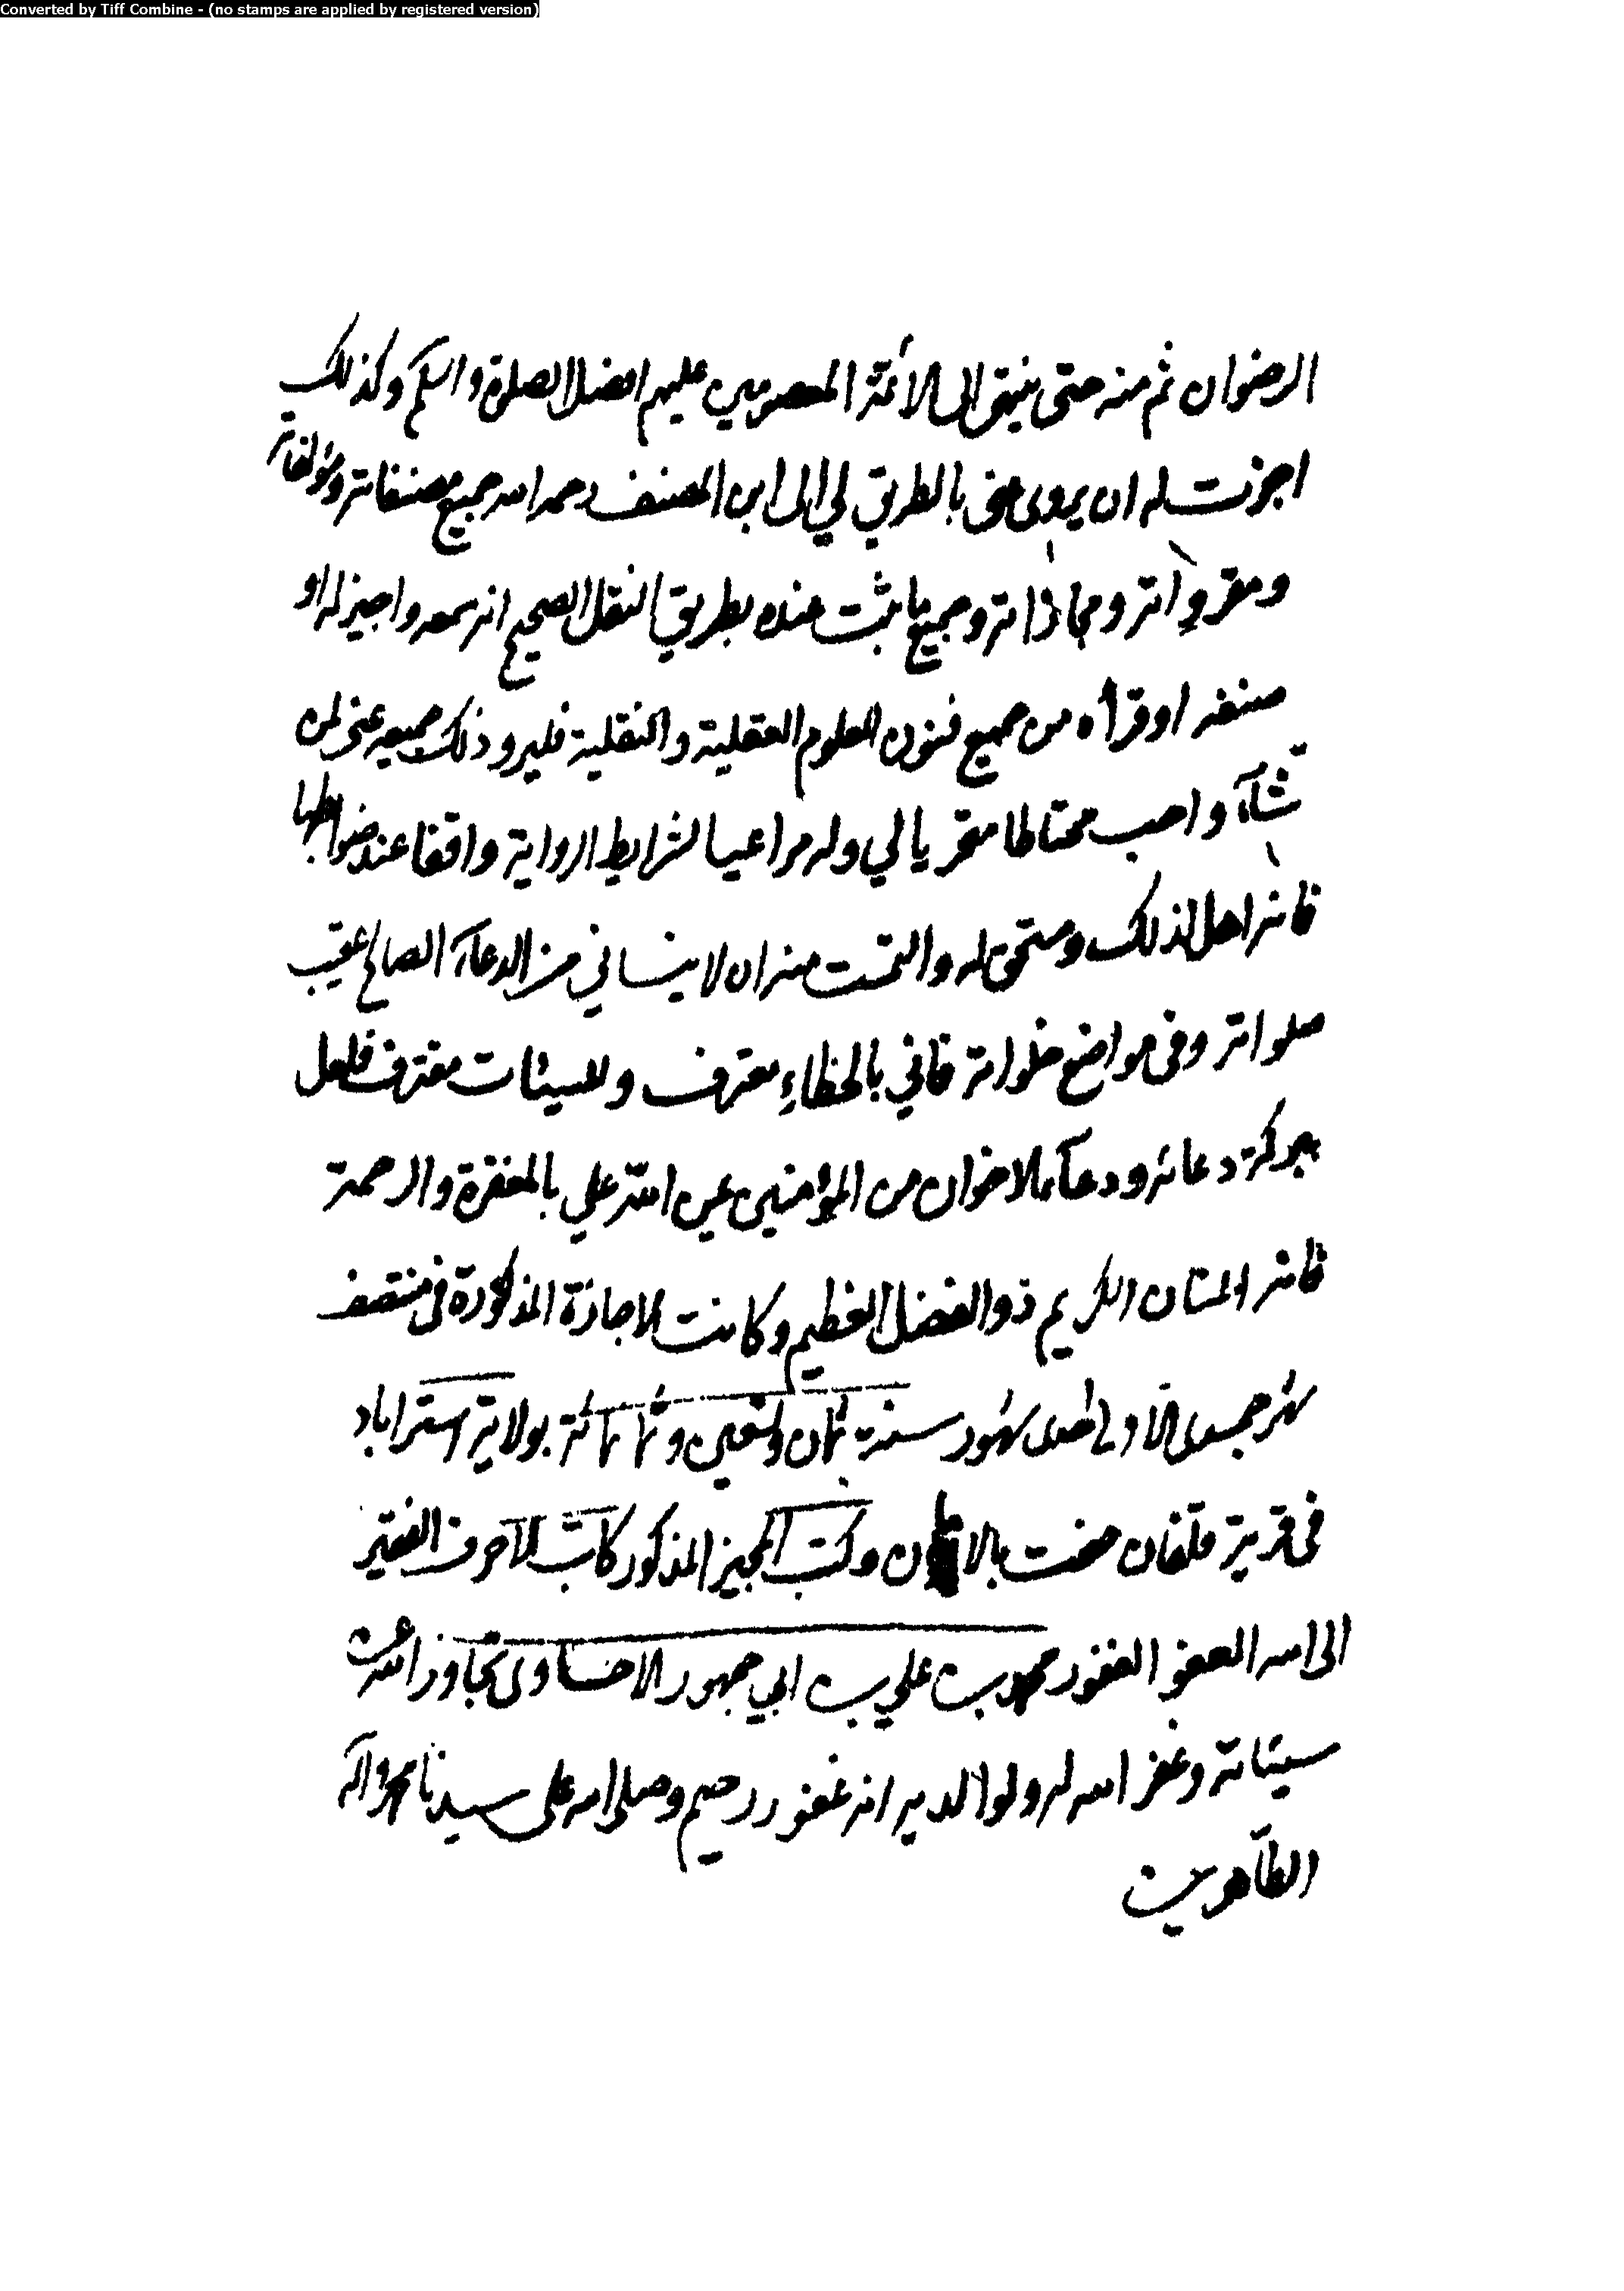 Converted by Tiff Combine - (no stamps are applied by registered version)
الرضوان ثم منه حتى ينتهى الى الائمة المعصومين عليهم افضل الصلوة والسلم وكذلك
اجزت له ان يروى عنى بالطريق لي الى ابن المصنف رحمه الله جميع مصنفاته ومؤلفاته
ومقروآته ومجازاته وجميع ما ثبت عنده بطريق النقل الصحيح انه سمعه واجيز له او
صنفه او قرأه من جميع فنون العلوم العقلية والنقلية فليرو ذلك جميعه عنى لمن
شآء واحب محتاطا متحريا لي وله مراعيا لشرايط الرواية واقفا عند ضوابطها
فانه اهل لذلك ومستحق له والتمست منه ان لا ينسانى من الدعآء الصالح عقيب
صلواته وفى مواضع خلواته فاني بالخطاءِ معترف وللسيئات مقترف فلعل
ببركة دعائه ودعآء الاخوان من المؤمنين يمن الله علي بالمغفرة والرحمة
فانه المنان الكريم ذو الفضل العظيم وكانت الاجازة المذكورة فى منتصف
شهر جميدى الاولى احدى شهور سنة ثمان وتسعين وثمانمائة بولاية استراباد
فى قرية قلقان حفت بالامان وكتب المجيز المذكور كاتب الاحرف الفقير
الى الله العفو الغفور محمد بن علي بن ابي جمهور الاحساوى تجاوز الله عن
سيئاته وغفر الله له ولوالديه انه غفور رحيم وصلى الله على سيدنا محمد وآله
الطاهرين